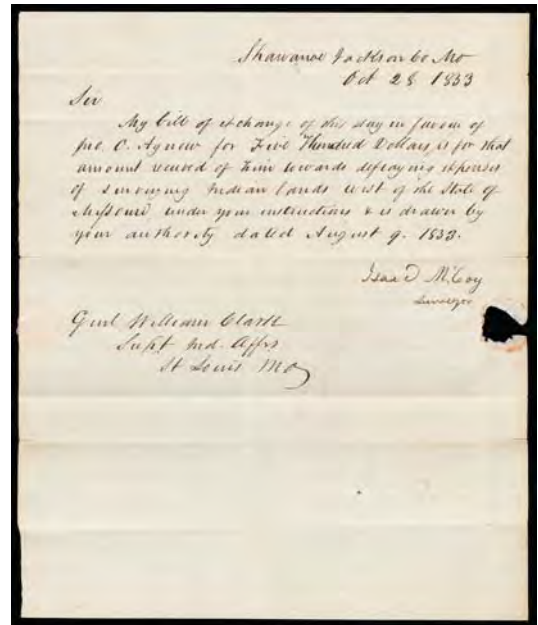 Shawanoe Jackson Co Mo
Oct 28 1833
Sir
My bill of exchange of this day in favour of
Jno. C. Agnew for Five Hundred Dollars, is for that
amount received of him towards defraying expenses
of surveying Indian lands west of the State of
Missouri under your instructions & is drawn by
your authority dated August 9. 1833.
Isaac McCoy
Surveyor
Genl William Clark
Supt Ind. Affrs
St Louis Mo